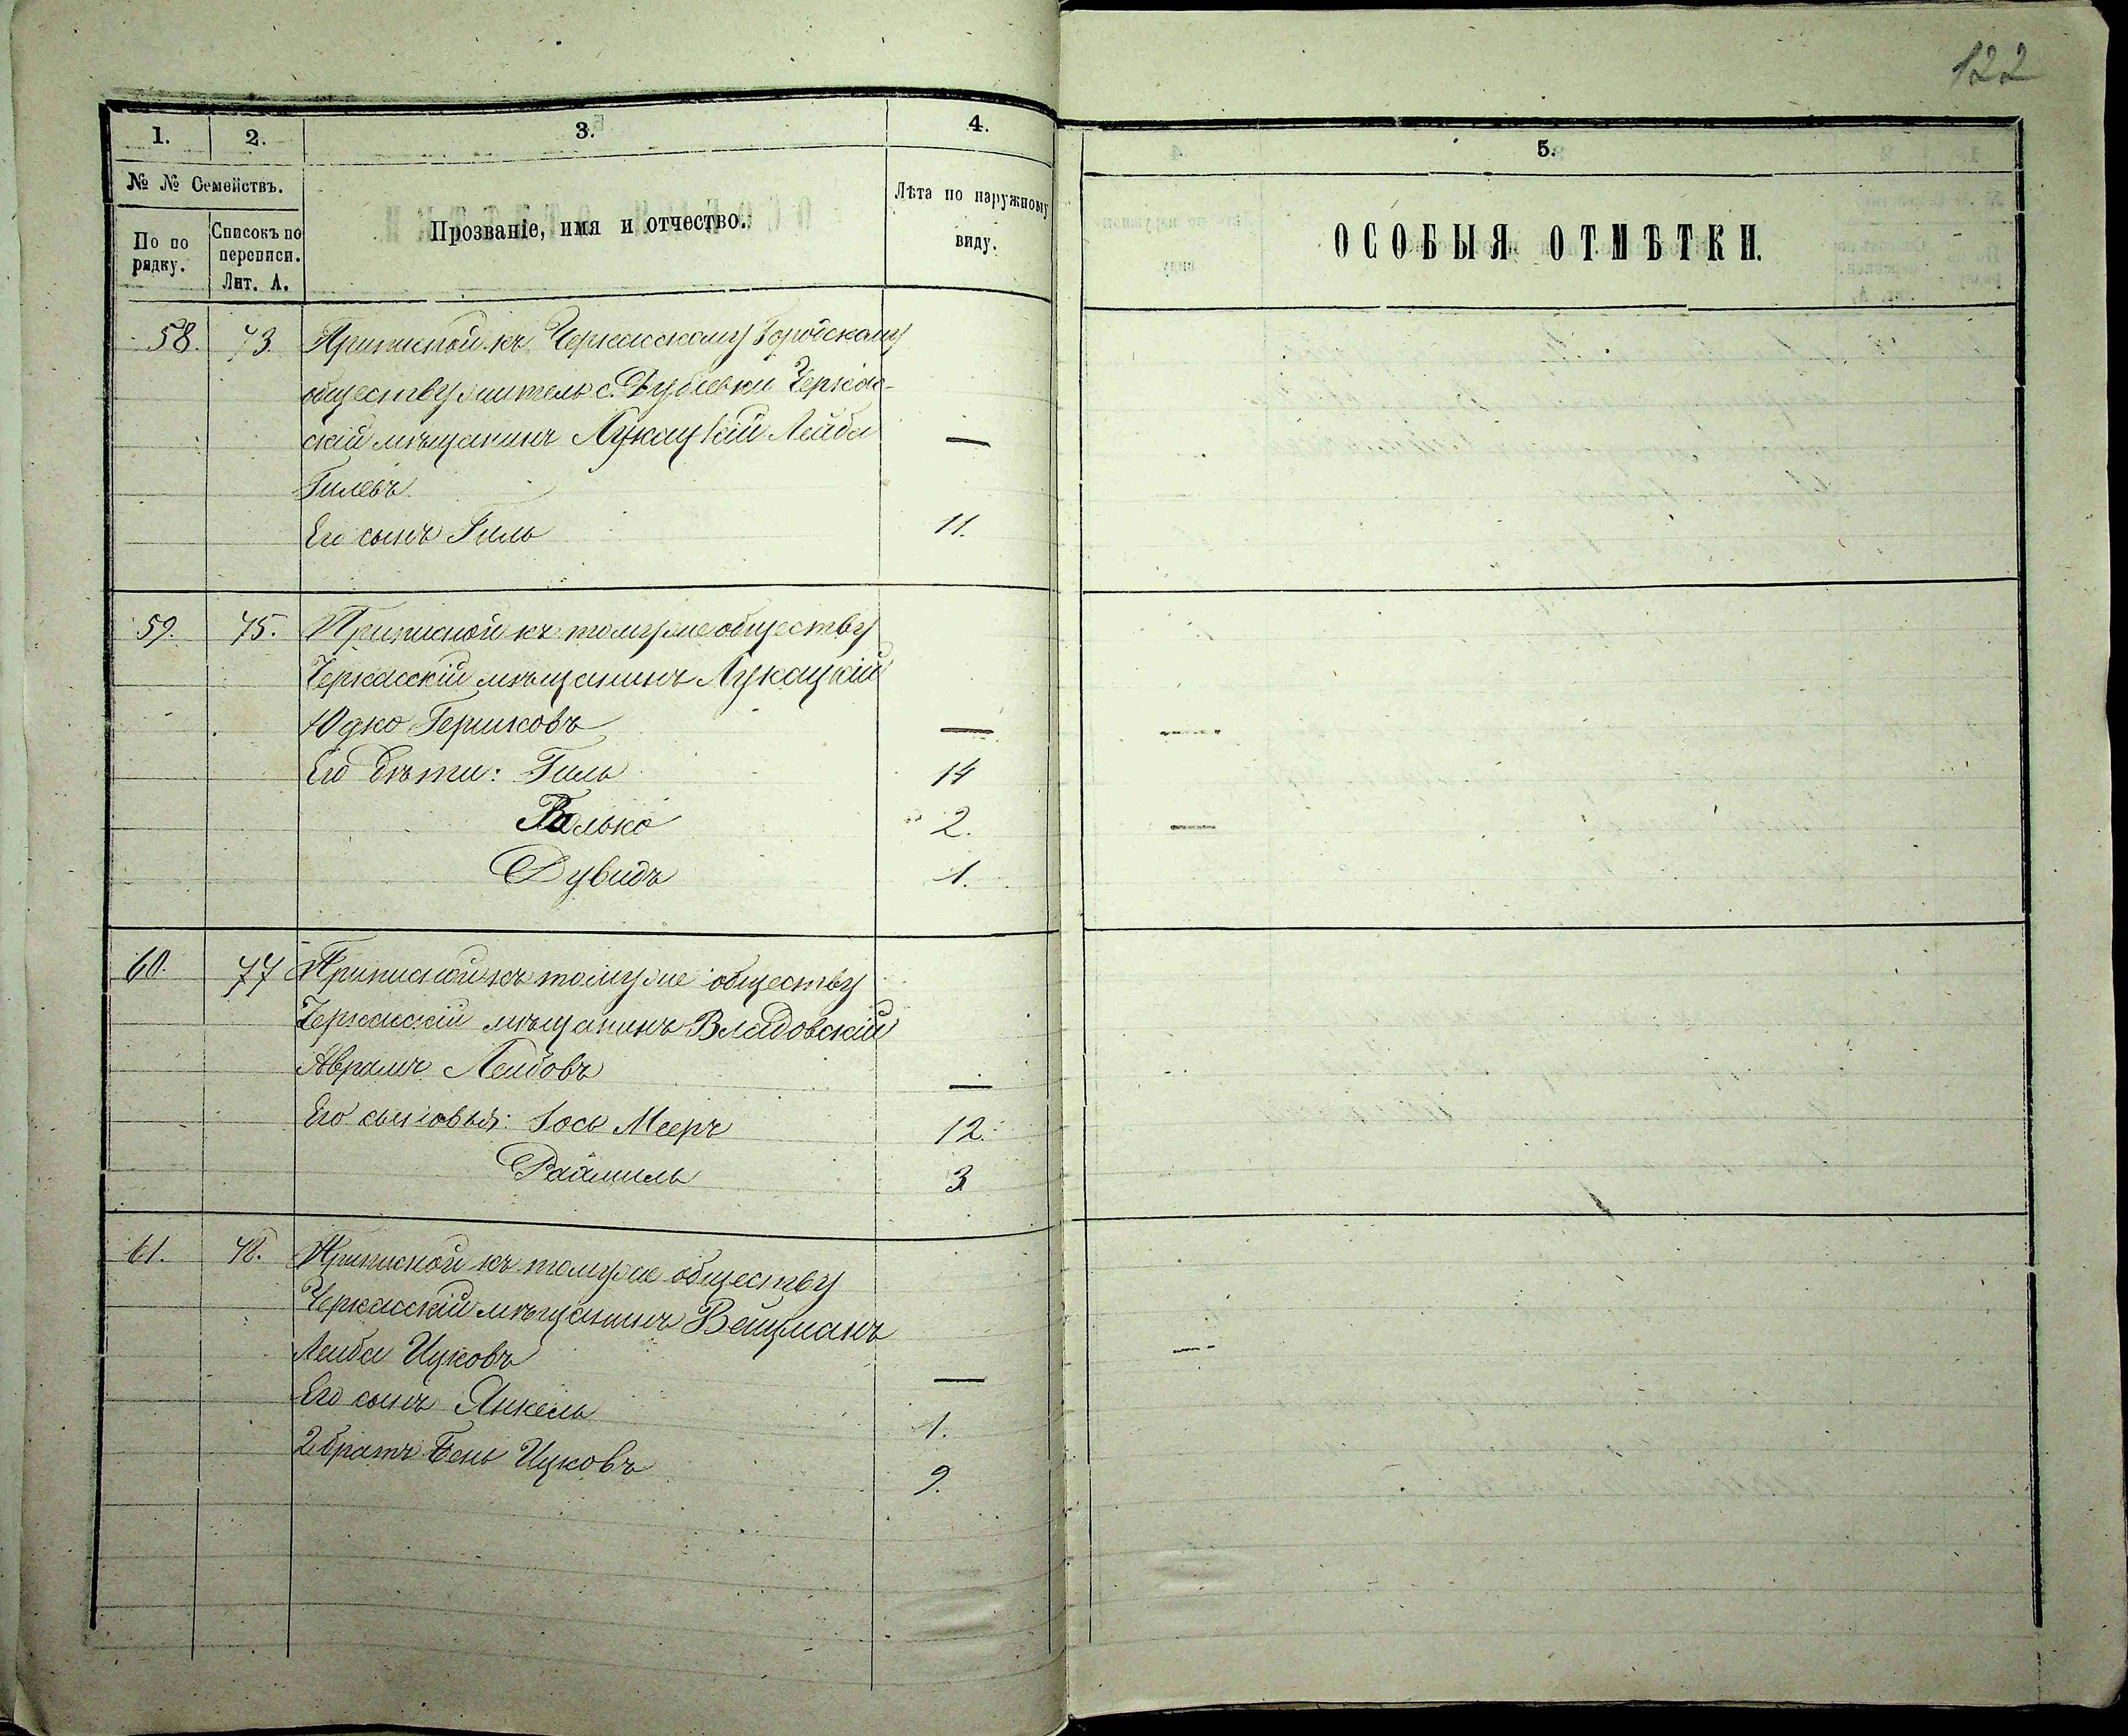 122
1. 2. 3. 4. 5.
№ № Семействъ.
По по рядку.
Списокъ по переписи. Лит. А.
Прозваніе, имя и отчество.
Лѣта по наружному виду.
ОСОБЫЯ ОТМѢТКИ.
58. 73. Приписной къ Черкасскому Городскому
обществу житель с. Дубіевки Черкас-
скій мѣщанинъ Лукацкій Лейба —
Гилевъ
Его сынъ Гиль 11.
59. 75. Приписной къ тому же обществу
Черкасскій мѣщанинъ Лукацкій
Юдко Гершковъ —
Его дѣти: Гиль 14
Волько 2.
Дувидъ 1.
60. 77 Приписной къ тому же обществу
Черкасскій мѣщанинъ Владовскій
Аврамъ Лейбовъ —
Его сыновья: Іосе Мееръ 12.
3
61. 78. Приписной къ тому же обществу
Черкасскій мѣщанинъ Вейцманъ
Лейба Ицковъ —
Его сынъ Янкель 1.
2 братъ Бень Ицковъ 9.